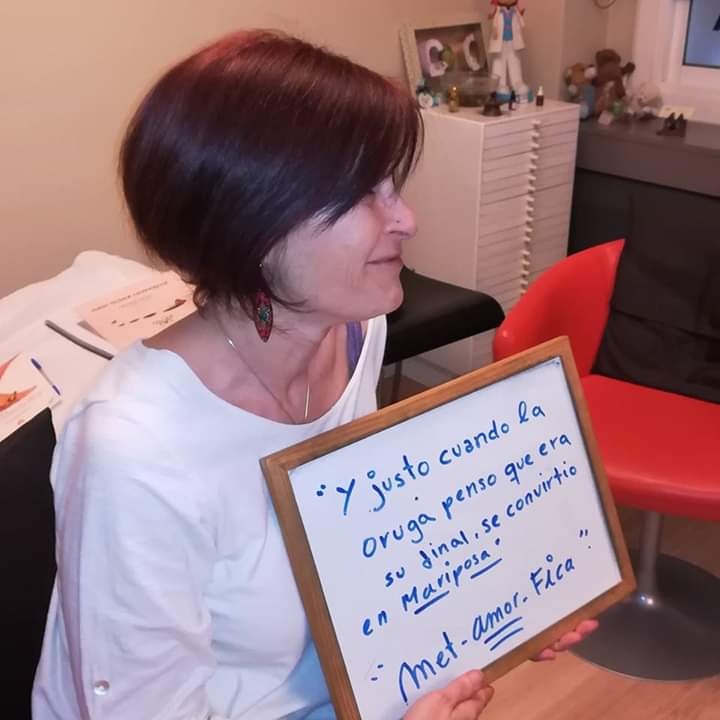 "Y justo cuando la
oruga penso que era
su final, se convirtio
en Mariposa".
"Met-amor-Fica".